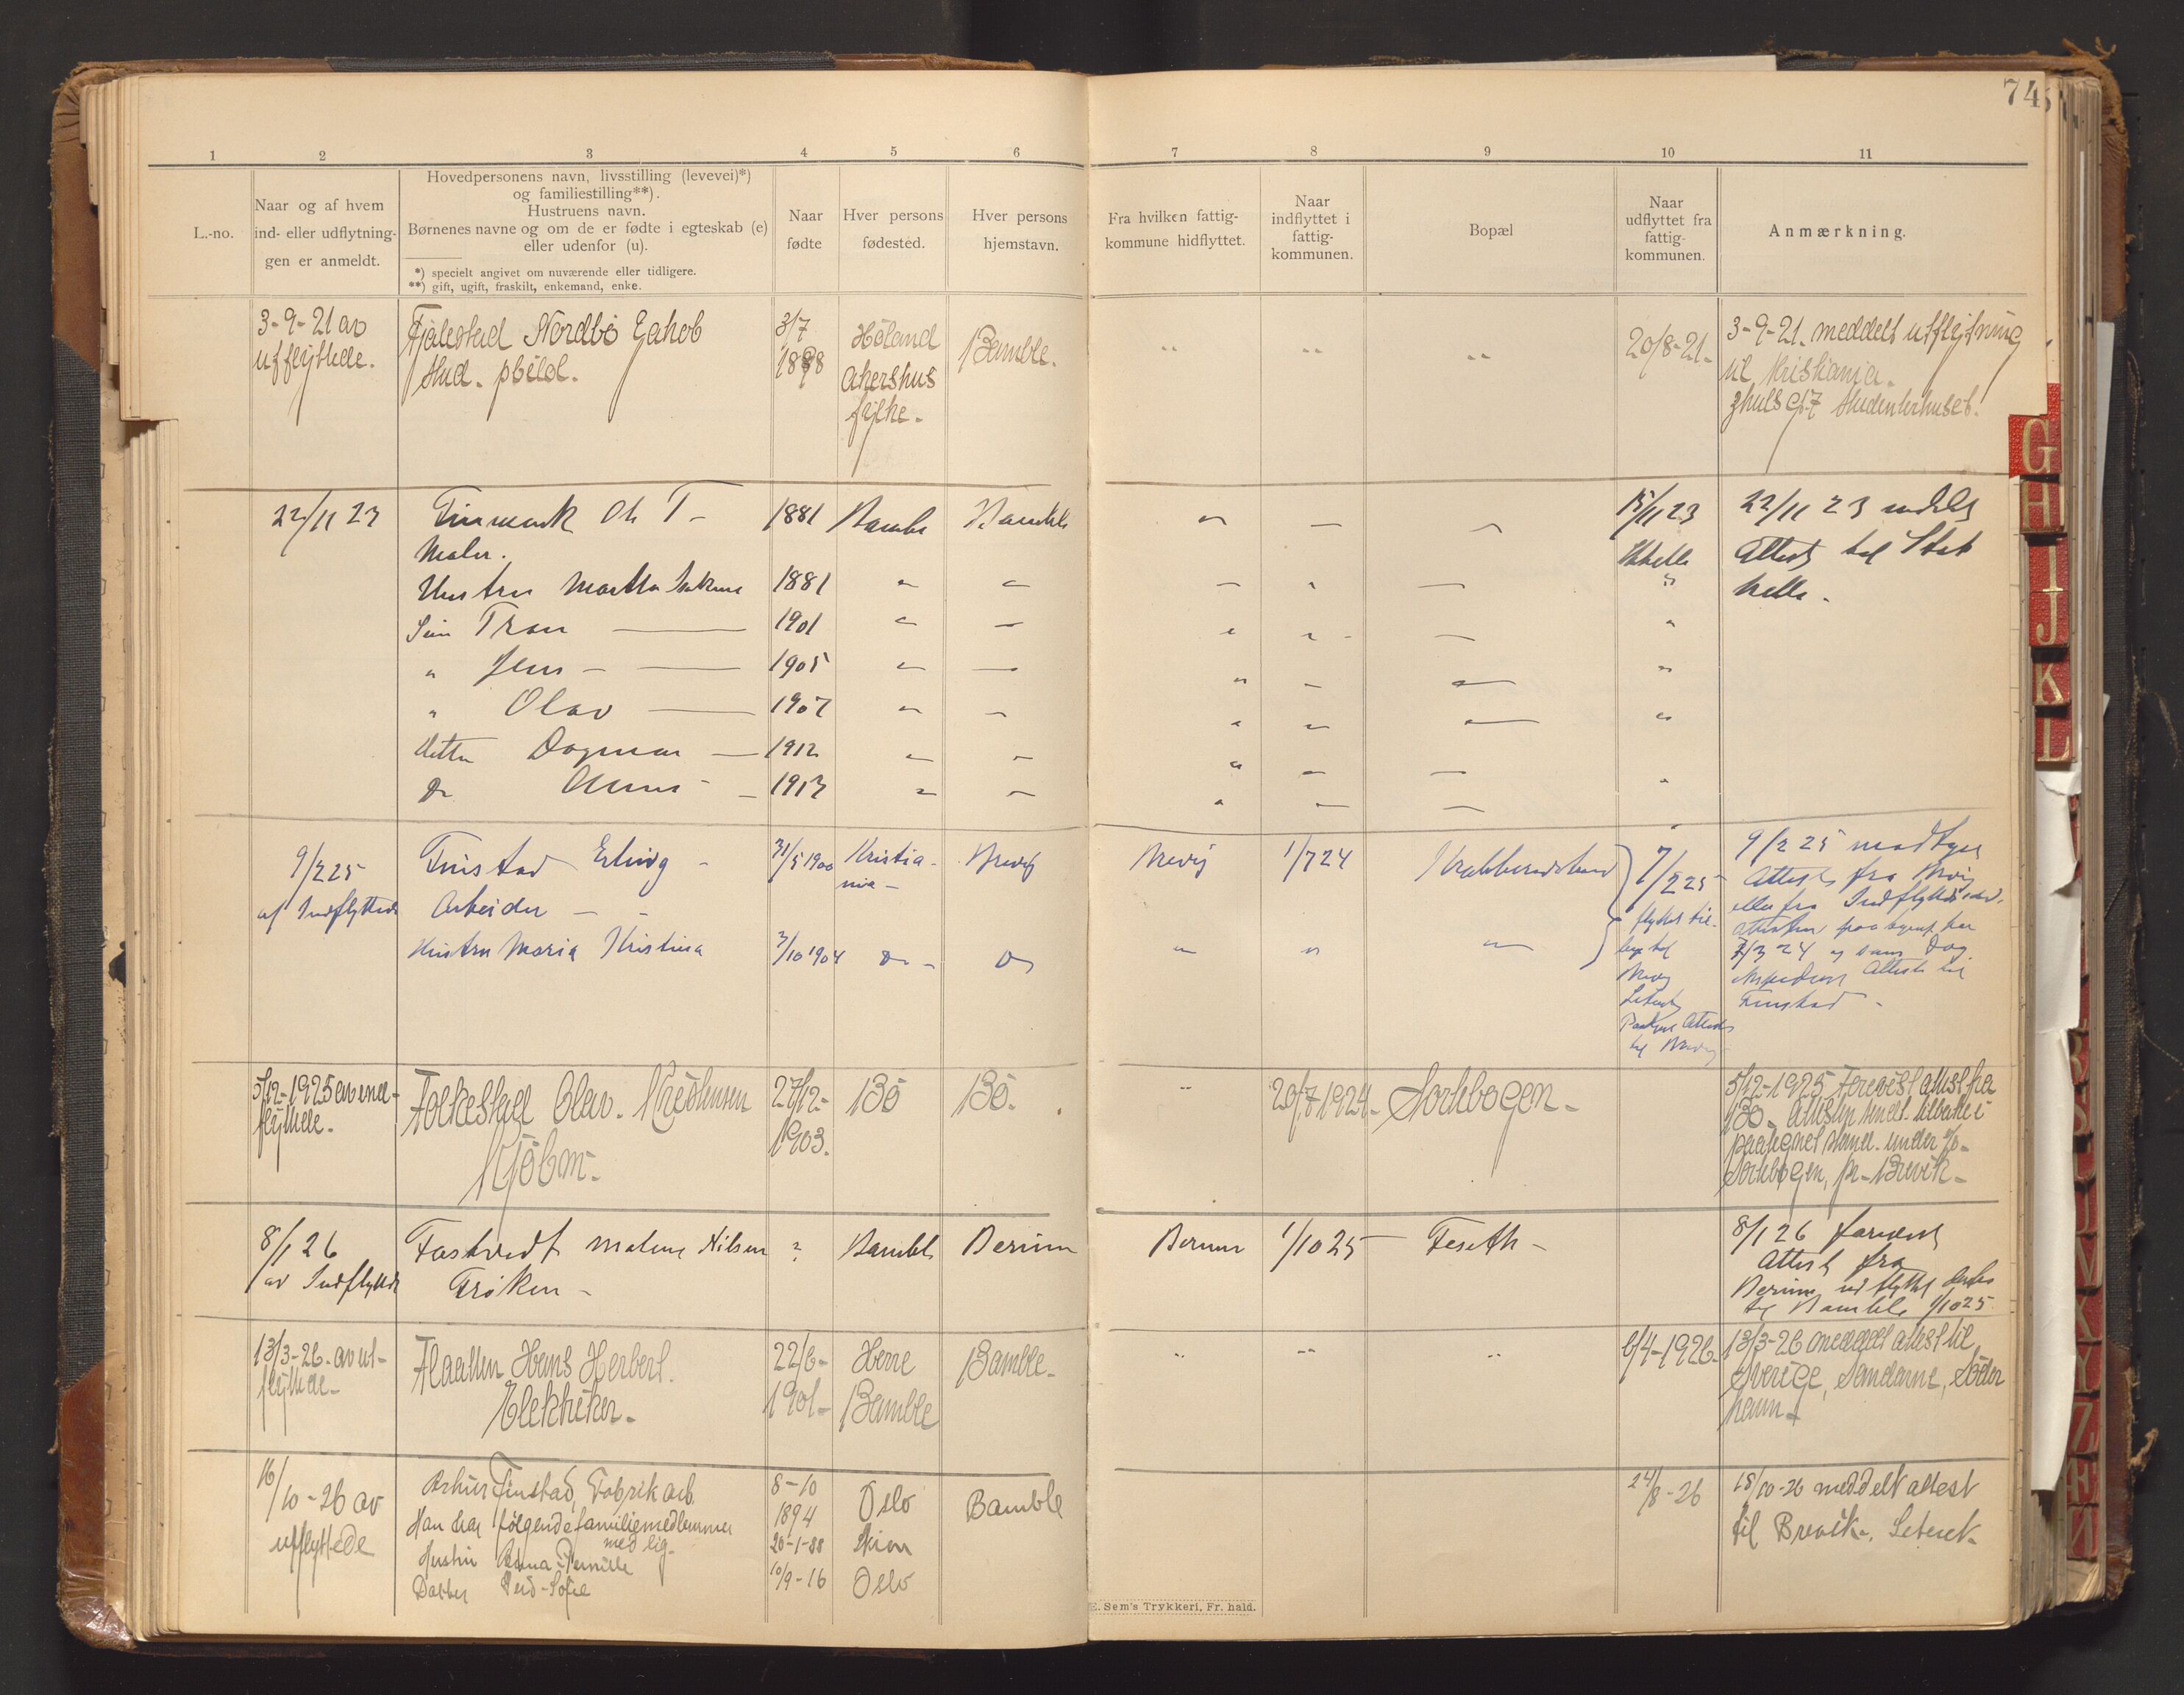 74
1 2 3 4 5 6 7 8 9 10 11
L.-no.
Naar og af hvem
ind- eller udflytning-
gen er anmeldt.
Hovedpersonens navn, livsstilling (levevei)*)
og familiestilling**).
Hustruens navn.
Børnenes navne og om de er fødte i egteskab (e)
eller udenfor (u).
*) specielt angivet om nuværende eller tidligere.
**) gift, ugift, fraskilt, enkemand, enke.
Naar
fødte
Hver persons
fødested.
Hver persons
hjemstavn.
Fra hvilken fattig-
kommune hidflyttet.
Naar
indflyttet i
fattig-
kommunen.
Bopæl
Naar
udflyttet fra
fattig-
kommunen.
Anmærkning.
3-9-21 av
utflyttede.
Fjalestad Nordbö Jakob
Stud. philol.
3/7
1898
Höland
Akershus
fylke.
Bamble.
20/8-21.
3-9-21. meddelt utflytning
til Kristiania.
Studenterhuset.
22/11 23
Finmark Ole T -
Maler.
1881 Bamble Bamble
15/11 23
Stathelle
22/11 23 meddelt
Attest til Stat
helle.
Hustru Martha 1881
Søn Tran 1901
" Jens - 1905
" Olav 1907
Datter Dagmar 1912
Do 1917
9/2 25
af Indflyttede
Finstad Erling -
Arbeider
31/5 1900
Kristia-
nia -
Brevig
Brevig
1/7 24
Krabberødstrand
7/2 25
flyttet til-
bage til
Brevig
Attest
til Brevig
9/2 25 modtaget
Attest fra Brevig
Indflyttede
7/3 24
Attest til
Finstad -
Hustru Maria Kristina 3/10 1904 Do - Do
5/12-1925 av ind-
flyttede.
Folkestad Olav. Kristensen
Kjöbm.
27/12-
1903.
Bö
Bö.
20/7 1924-
Sortebogen-
5/12-1925. Forevist attest fra
Bö. Attesten sendt tilbake i
paategnet stand. under
Sortebogen, pr. Brevik-
8/1 26
av Indflyttede
Fostvedt Malene Nilsen
Frøken -
?
Bamble
Berum
Berum
1/10 25
Feseth -
8/1 26 forevist
Attest fra
Berum udflyttet derfra
til Bamble 1/10 25.
13/3-26. av ut-
flyttede-
Flaatten Hans Herbert.
Elektriker-
22/6-
1901-
Herre
Bamble
Bamble-
6/4-1926.
13/3-26 meddelt attest til
Sverige, Sandarne, Söder
hamn.
16/10-26 av
utflyttede
Arthur Finstad, Fabrikarb.
Han har følgende familiemedlemmer
med sig-
Hustru Anna Pernille
Datter Sofie
8-10
1894
20-1-88
10/9-16
Oslo
Skien
Oslo
Bamble
24/8-26
18/10-26 meddelt attest
til Brevik.
E. Sem's Trykkeri, Fr. hald.
G
H
I
J
K
L